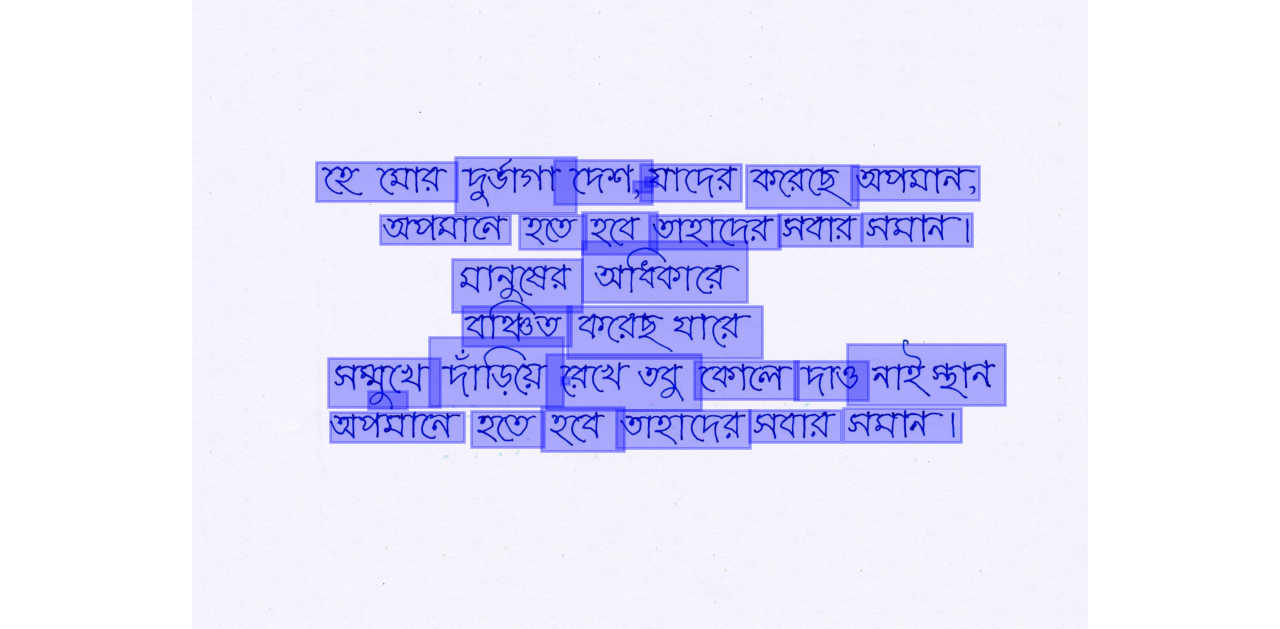 হে মোর দুর্ভাগা দেশ, যাদের করেছে অপমান,
অপমানে হতে হবে তাহাদের সবার সমান।
মানুষের অধিকারে
বঞ্চিত করেছ যারে
সম্মুখে দাঁড়িয়ে রেখে তবু কোলে দাও নাই স্থান
অপমানে হতে হবে তাহাদের সবার সমান।